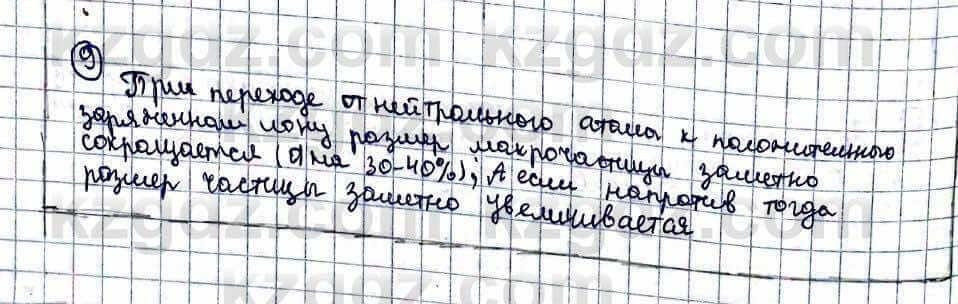 9
При переходе от нейтрального атома к положительно
заряженном иону размер макрочастицы заметно
сокращается (на 30-40%); А если напротив тогда
размер частицы заметно увеличивается
kzgdz.com